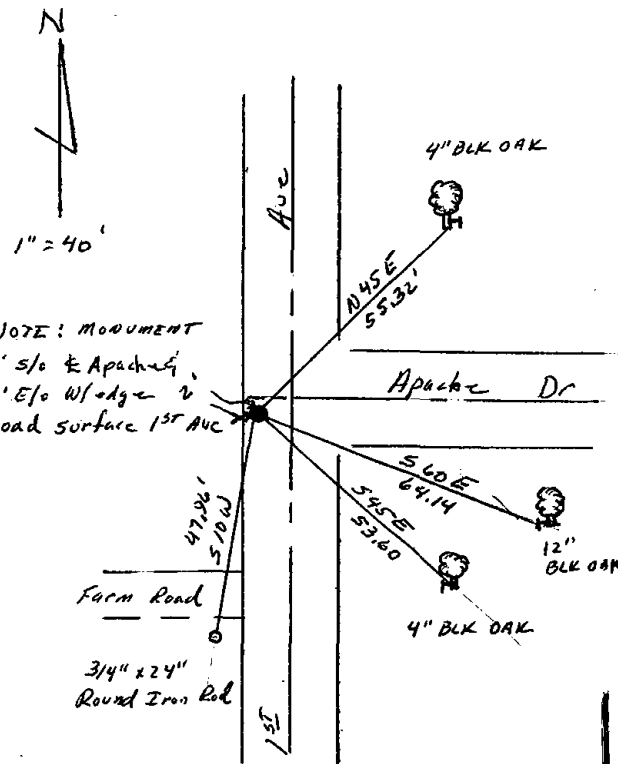 N
1" = 40'
4" BLK OAK
Ave
N45E
55.32'
NOTE: MONUMENT
' S/o ℄ Apache &
' E/o W/edge
road surface 1ST Ave
Apache Dr
S60E
64.14
S45E
53.60
47.96'
S10W
12"
BLK OAK
Farm Road
4" BLK OAK
3/4" x 24"
Round Iron Rod
1ST